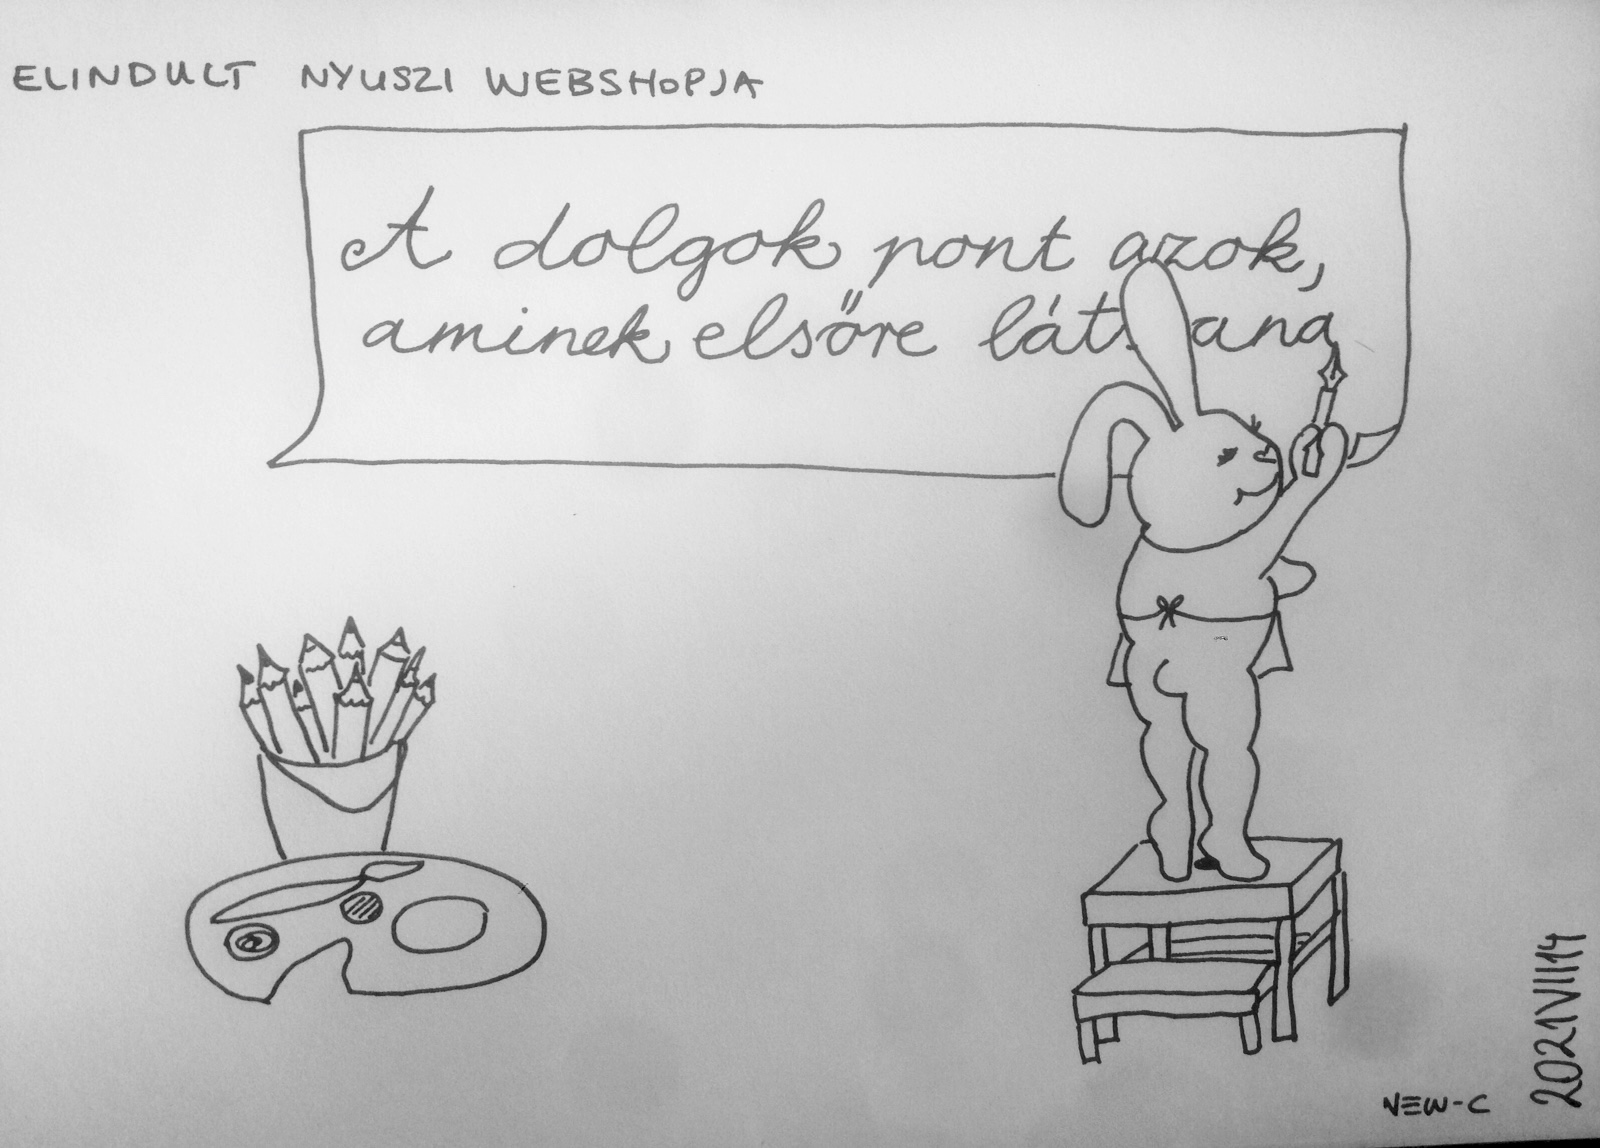 ELINDULT NYUSZI WEBSHOPJA
A dolgok pont azok,
aminek elsőre lát ana
NEW-C
2021VII14